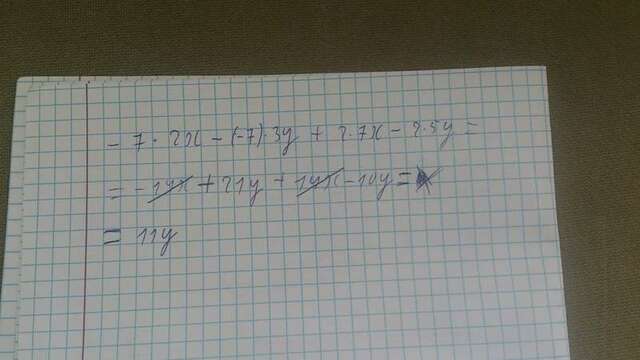 - 7 · 2x - (-7) · 3y + 2 · 7x - 2 · 5y =
= - 14x + 21y + 14x - 10y =
= 11y